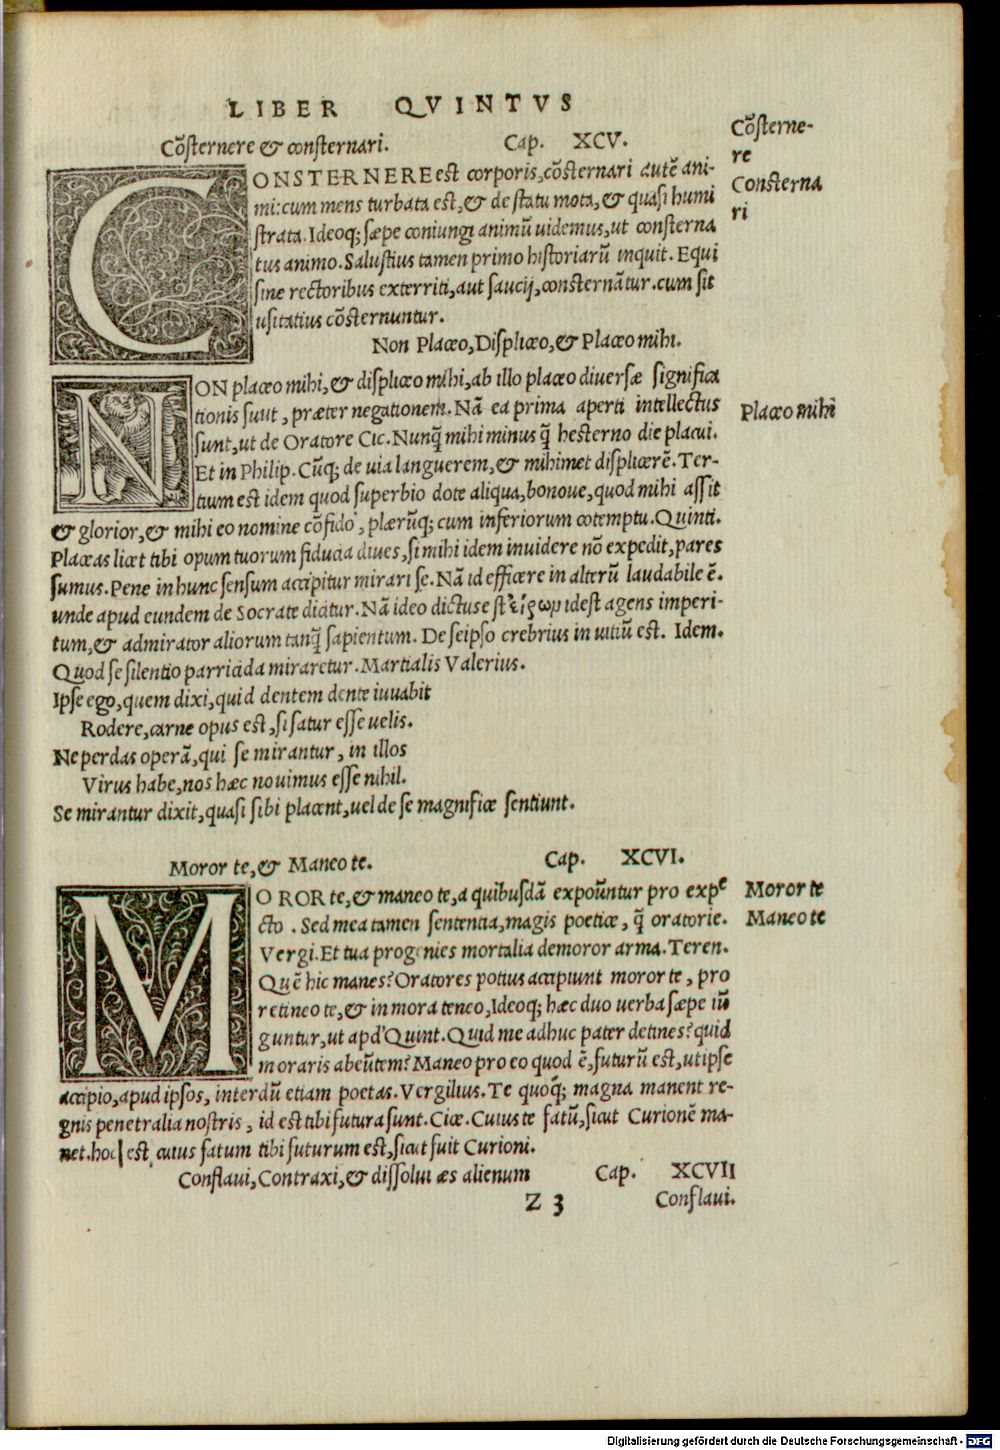 LIBER QVINTVS
Cõsternere & consternari. Cap. XCV.
Cõsterne-
re
Consterna
ri
CONSTERNERE est corporis, cõsternari autẽ ani-
mi: cum mens turbata est, & de statu mota, & quasi humi
strata. Ideoq; sæpe coniungi animũ uidemus, ut consterna
tus animo. Salustius tamen primo historiarũ inquit. Equi
sine rectoribus exterriti, aut saucij, consternãtur. cum sit
usitatius cõsternuntur.
Non Placeo, Displiceo, & Placeo mihi.
NON placeo mihi, & displiceo mihi, ab illo placeo diuersæ significa
tionis sunt, præter negationem. Nã ea prima aperti intellectus
Placeo mihi
sunt, ut de Oratore Cic. Nunq̃ mihi minus q̃ hesterno die placui.
Et in Philip. Cũq; de uia languerem, & mihimet displicerẽ. Ter-
tium est idem quod superbio dote aliqua, bonoue, quod mihi assit
& glorior, & mihi eo nomine cõfido, plærũq; cum inferiorum cõtemptu. Quinti.
Placeas licet tibi opum tuorum fiducia diues, si mihi idem inuidere nõ expedit, pares
sumus. Pene in hunc sensum accipitur mirari se. Nã id efficere in alterũ laudabile ẽ.
unde apud eundem de Socrate dicitur. Nã ideo dictus est εἴρων idest agens imperi-
tum, & admirator aliorum tanq̃ sapientum. De seipso crebrius in uitiũ est. Idem.
Quod se silentio parricida miraretur. Martialis Valerius.
Ipse ego, quem dixi, quid dentem dente iuuabit
Rodere, carne opus est, si satur esse uelis.
Ne perdas operã, qui se mirantur, in illos
Virus habe, nos hæc nouimus esse nihil.
Se mirantur dixit, quasi sibi placent, uel de se magnifice sentiunt.
Moror te, & Maneo te. Cap. XCVI.
MOROR te, & maneo te, a quibusdã expoũuntur pro expe
Moror te
cto. Sed mea tamen sententia, magis poetice, q̃ oratorie.
Maneo te
Vergi. Et tua progenies mortalia demoror arma. Teren.
Quẽ hic manes? Oratores potius accipiunt moror te, pro
retineo te, & in mora teneo, Ideoq; hæc duo uerba sæpe iũ
guntur, ut apd' Quint. Quid me adhuc pater detines? quid
moraris abeũtem? Maneo pro eo quod ẽ, futurũ est, ut ipse
accipio, apud ipsos, interdũ etiam poetas. Vergilius. Te quoq; magna manent re-
gnis penetralia nostris, id est tibi futura sunt. Cice. Cuius te fatũ, sicut Curionẽ ma-
net. hoc est cuius fatum tibi futurum est, sicut fuit Curioni.
Conflaui, Contraxi, & dissolui æs alienum Cap. XCVII
Z 3 Conflaui.
Digitalisierung gefördert durch die Deutsche Forschungsgemeinschaft - DFG